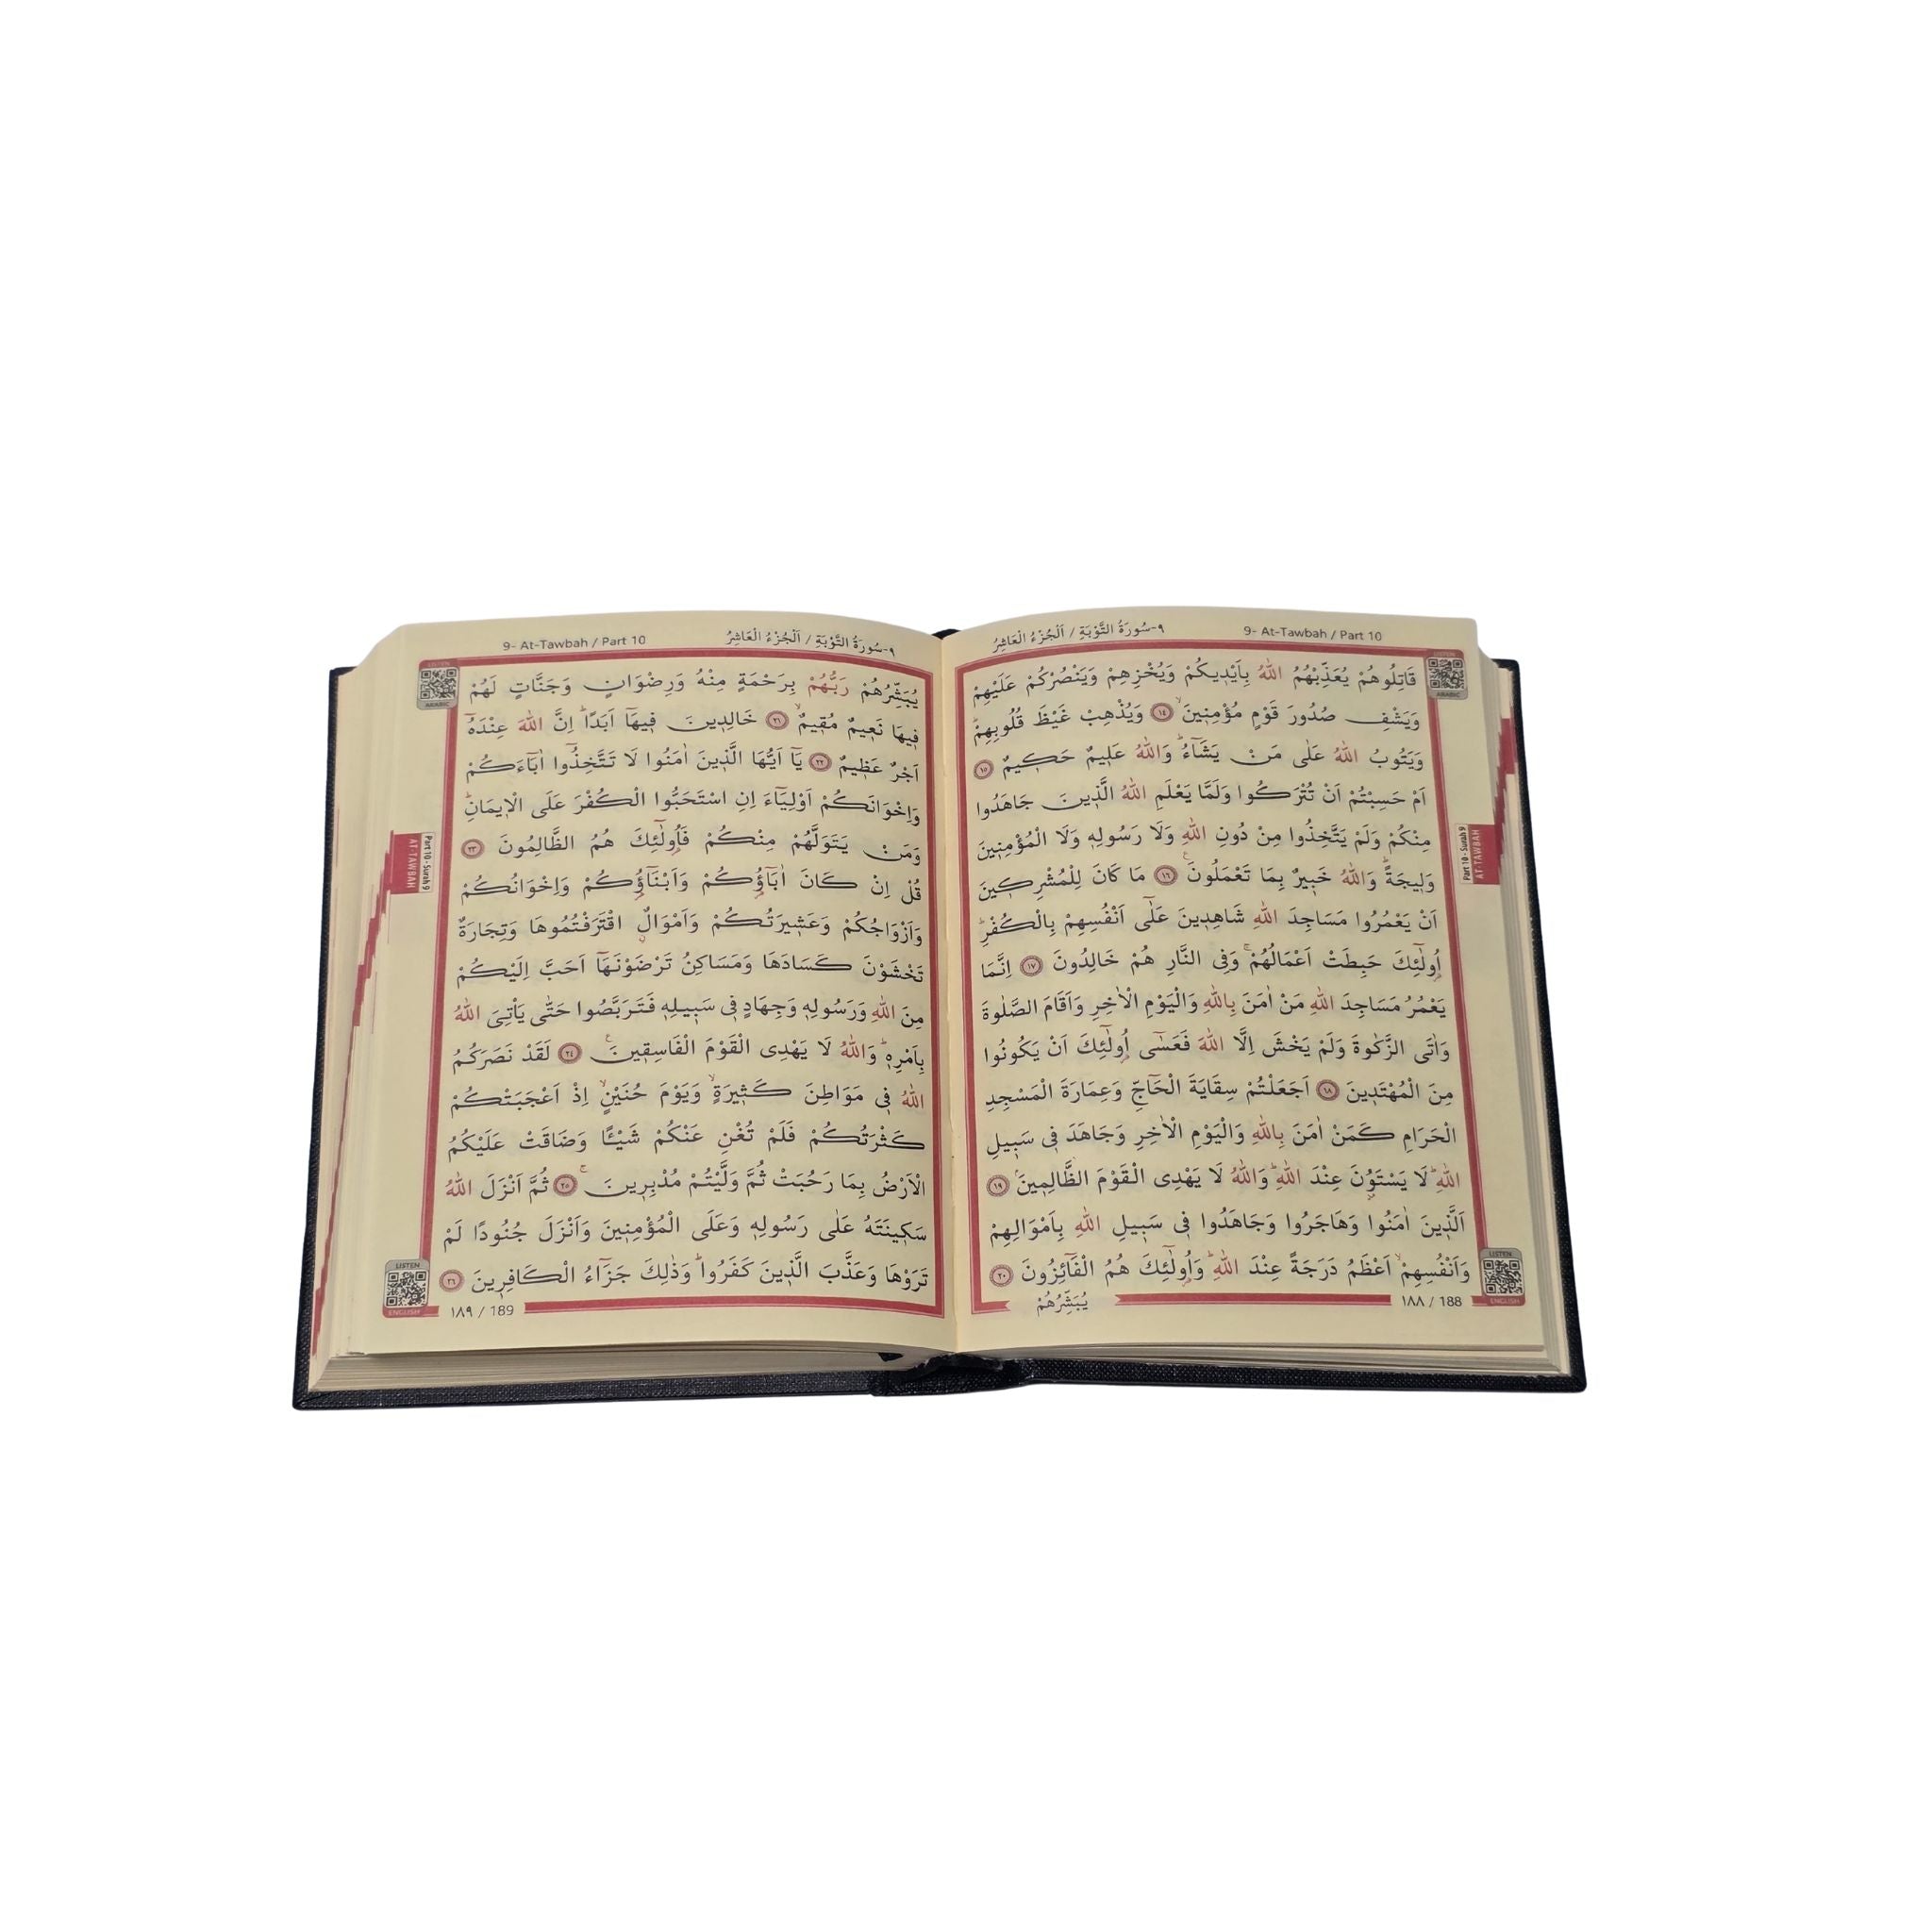 ٩-سُورَةُ التَّوْبَةِ / اَلْجُزْءُ الْعَاشِرُ
9- At-Tawbah / Part 10
LISTEN
ARABIC
قَاتِلُوهُمْ يُعَذِّبْهُمُ اللّٰهُ بِاَيْدٖيكُمْ وَيُخْزِهِمْ وَيَنْصُرْكُمْ عَلَيْهِمْ
وَيَشْفِ صُدُورَ قَوْمٍ مُؤْمِنٖينَۙ ١٤ وَيُذْهِبْ غَيْظَ قُلُوبِهِمْؕ
وَيَتُوبُ اللّٰهُ عَلٰى مَنْ يَشَٓاءُؕ وَاللّٰهُ عَلٖيمٌ حَكٖيمٌ ١٥
اَمْ حَسِبْتُمْ اَنْ تُتْرَكُوا وَلَمَّا يَعْلَمِ اللّٰهُ الَّذٖينَ جَاهَدُوا
مِنْكُمْ وَلَمْ يَتَّخِذُوا مِنْ دُونِ اللّٰهِ وَلَا رَسُولِهٖ وَلَا الْمُؤْمِنٖينَ
وَلٖيجَةًؕ وَاللّٰهُ خَبٖيرٌ بِمَا تَعْمَلُونَࣖ ١٦ مَا كَانَ لِلْمُشْرِكٖينَ
اَنْ يَعْمُرُوا مَسَاجِدَ اللّٰهِ شَاهِدٖينَ عَلٰٓى اَنْفُسِهِمْ بِالْكُفْرِؕ
اُو۬لٰٓئِكَ حَبِطَتْ اَعْمَالُهُمْۚ وَفِي النَّارِ هُمْ خَالِدُونَ ١٧ اِنَّمَا
يَعْمُرُ مَسَاجِدَ اللّٰهِ مَنْ اٰمَنَ بِاللّٰهِ وَالْيَوْمِ الْاٰخِرِ وَاَقَامَ الصَّلٰوةَ
وَاٰتَى الزَّكٰوةَ وَلَمْ يَخْشَ اِلَّا اللّٰهَ فَعَسٰٓى اُو۬لٰٓئِكَ اَنْ يَكُونُوا
مِنَ الْمُهْتَدٖينَ ١٨ اَجَعَلْتُمْ سِقَايَةَ الْحَٓاجِّ وَعِمَارَةَ الْمَسْجِدِ
الْحَرَامِ كَمَنْ اٰمَنَ بِاللّٰهِ وَالْيَوْمِ الْاٰخِرِ وَجَاهَدَ فٖي سَبٖيلِ
اللّٰهِؕ لَا يَسْتَوُ۫نَ عِنْدَ اللّٰهِؕ وَاللّٰهُ لَا يَهْدِي الْقَوْمَ الظَّالِمٖينَۢ ١٩
اَلَّذٖينَ اٰمَنُوا وَهَاجَرُوا وَجَاهَدُوا فٖي سَبٖيلِ اللّٰهِ بِاَمْوَالِهِمْ
وَاَنْفُسِهِمْۙ اَعْظَمُ دَرَجَةً عِنْدَ اللّٰهِؕ وَاُو۬لٰٓئِكَ هُمُ الْفَٓائِزُونَ ٢٠
يُبَشِّرُهُمْ
١٨٨ / 188
LISTEN
ENGLISH
Part 10 - Surah 9
AT-TAWBAH
9- At-Tawbah / Part 10
٩-سُورَةُ التَّوْبَةِ / اَلْجُزْءُ الْعَاشِرُ
LISTEN
ARABIC
يُبَشِّرُهُمْ رَبُّهُمْ بِرَحْمَةٍ مِنْهُ وَرِضْوَانٍ وَجَنَّاتٍ لَهُمْ
فٖيهَا نَعٖيمٌ مُقٖيمٌۙ ٢١ خَالِدٖينَ فٖيهَٓا اَبَدًاؕ اِنَّ اللّٰهَ عِنْدَهُٓ
اَجْرٌ عَظٖيمٌ ٢٢ يَٓا اَيُّهَا الَّذٖينَ اٰمَنُوا لَا تَتَّخِذُٓوا اٰبَٓاءَكُمْ
وَاِخْوَانَكُمْ اَوْلِيَٓاءَ اِنِ اسْتَحَبُّوا الْكُفْرَ عَلَى الْاٖيمَانِؕ
وَمَنْ يَتَوَلَّهُمْ مِنْكُمْ فَاُو۬لٰٓئِكَ هُمُ الظَّالِمُونَ ٢٣
قُلْ اِنْ كَانَ اٰبَٓاؤُ۬كُمْ وَاَبْنَٓاؤُ۬كُمْ وَاِخْوَانُكُمْ
وَاَزْوَاجُكُمْ وَعَشٖيرَتُكُمْ وَاَمْوَالٌۨ اقْتَرَفْتُمُوهَا وَتِجَارَةٌ
تَخْشَوْنَ كَسَادَهَا وَمَسَاكِنُ تَرْضَوْنَهَٓا اَحَبَّ اِلَيْكُمْ
مِنَ اللّٰهِ وَرَسُولِهٖ وَجِهَادٍ فٖي سَبٖيلِهٖ فَتَرَبَّصُوا حَتّٰى يَاْتِيَ اللّٰهُ
بِاَمْرِهٖؕ وَاللّٰهُ لَا يَهْدِي الْقَوْمَ الْفَاسِقٖينَࣖ ٢٤ لَقَدْ نَصَرَكُمُ
اللّٰهُ فٖي مَوَاطِنَ كَثٖيرَةٍۙ وَيَوْمَ حُنَيْنٍۙ اِذْ اَعْجَبَتْكُمْ
كَثْرَتُكُمْ فَلَمْ تُغْنِ عَنْكُمْ شَيْـًٔا وَضَاقَتْ عَلَيْكُمُ
الْاَرْضُ بِمَا رَحُبَتْ ثُمَّ وَلَّيْتُمْ مُدْبِرٖينَۚ ٢٥ ثُمَّ اَنْزَلَ اللّٰهُ
سَكٖينَتَهُ عَلٰى رَسُولِهٖ وَعَلَى الْمُؤْمِنٖينَ وَاَنْزَلَ جُنُودًا لَمْ
تَرَوْهَا وَعَذَّبَ الَّذٖينَ كَفَرُواؕ وَذٰلِكَ جَزَٓاءُ الْكَافِرٖينَ ٢٦
١٨٩ / 189
LISTEN
ENGLISH
Part 10 - Surah 9
AT-TAWBAH